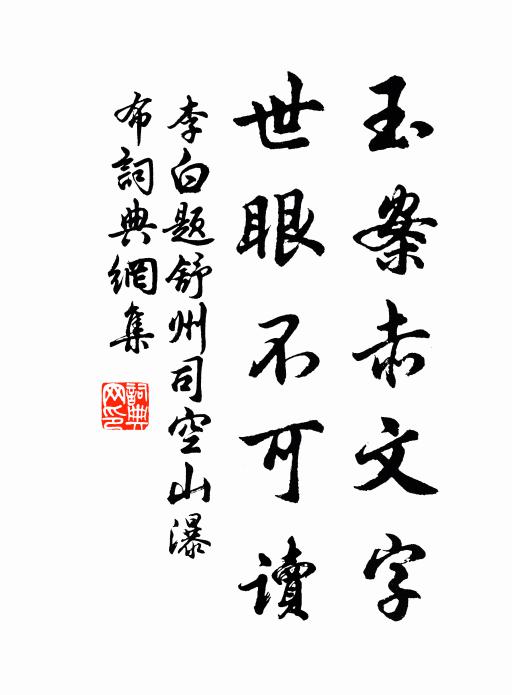 玉案赤文字
世眼不可讀
李白题舒州司空山瀑
布詞典網集
詞典
网印